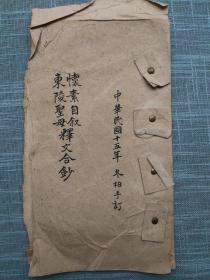 中華民國十五年 冬柏手訂
懷素自叙
東陵聖母釋文合鈔